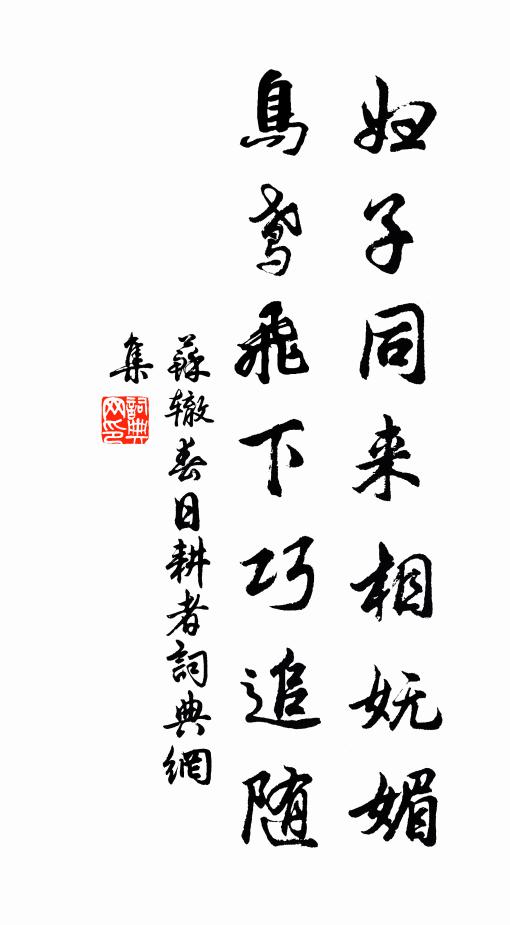 妇子同来相妩媚
鳥鸢飛下巧追随
蘇辙春日耕者詞典網
集
詞典
网印